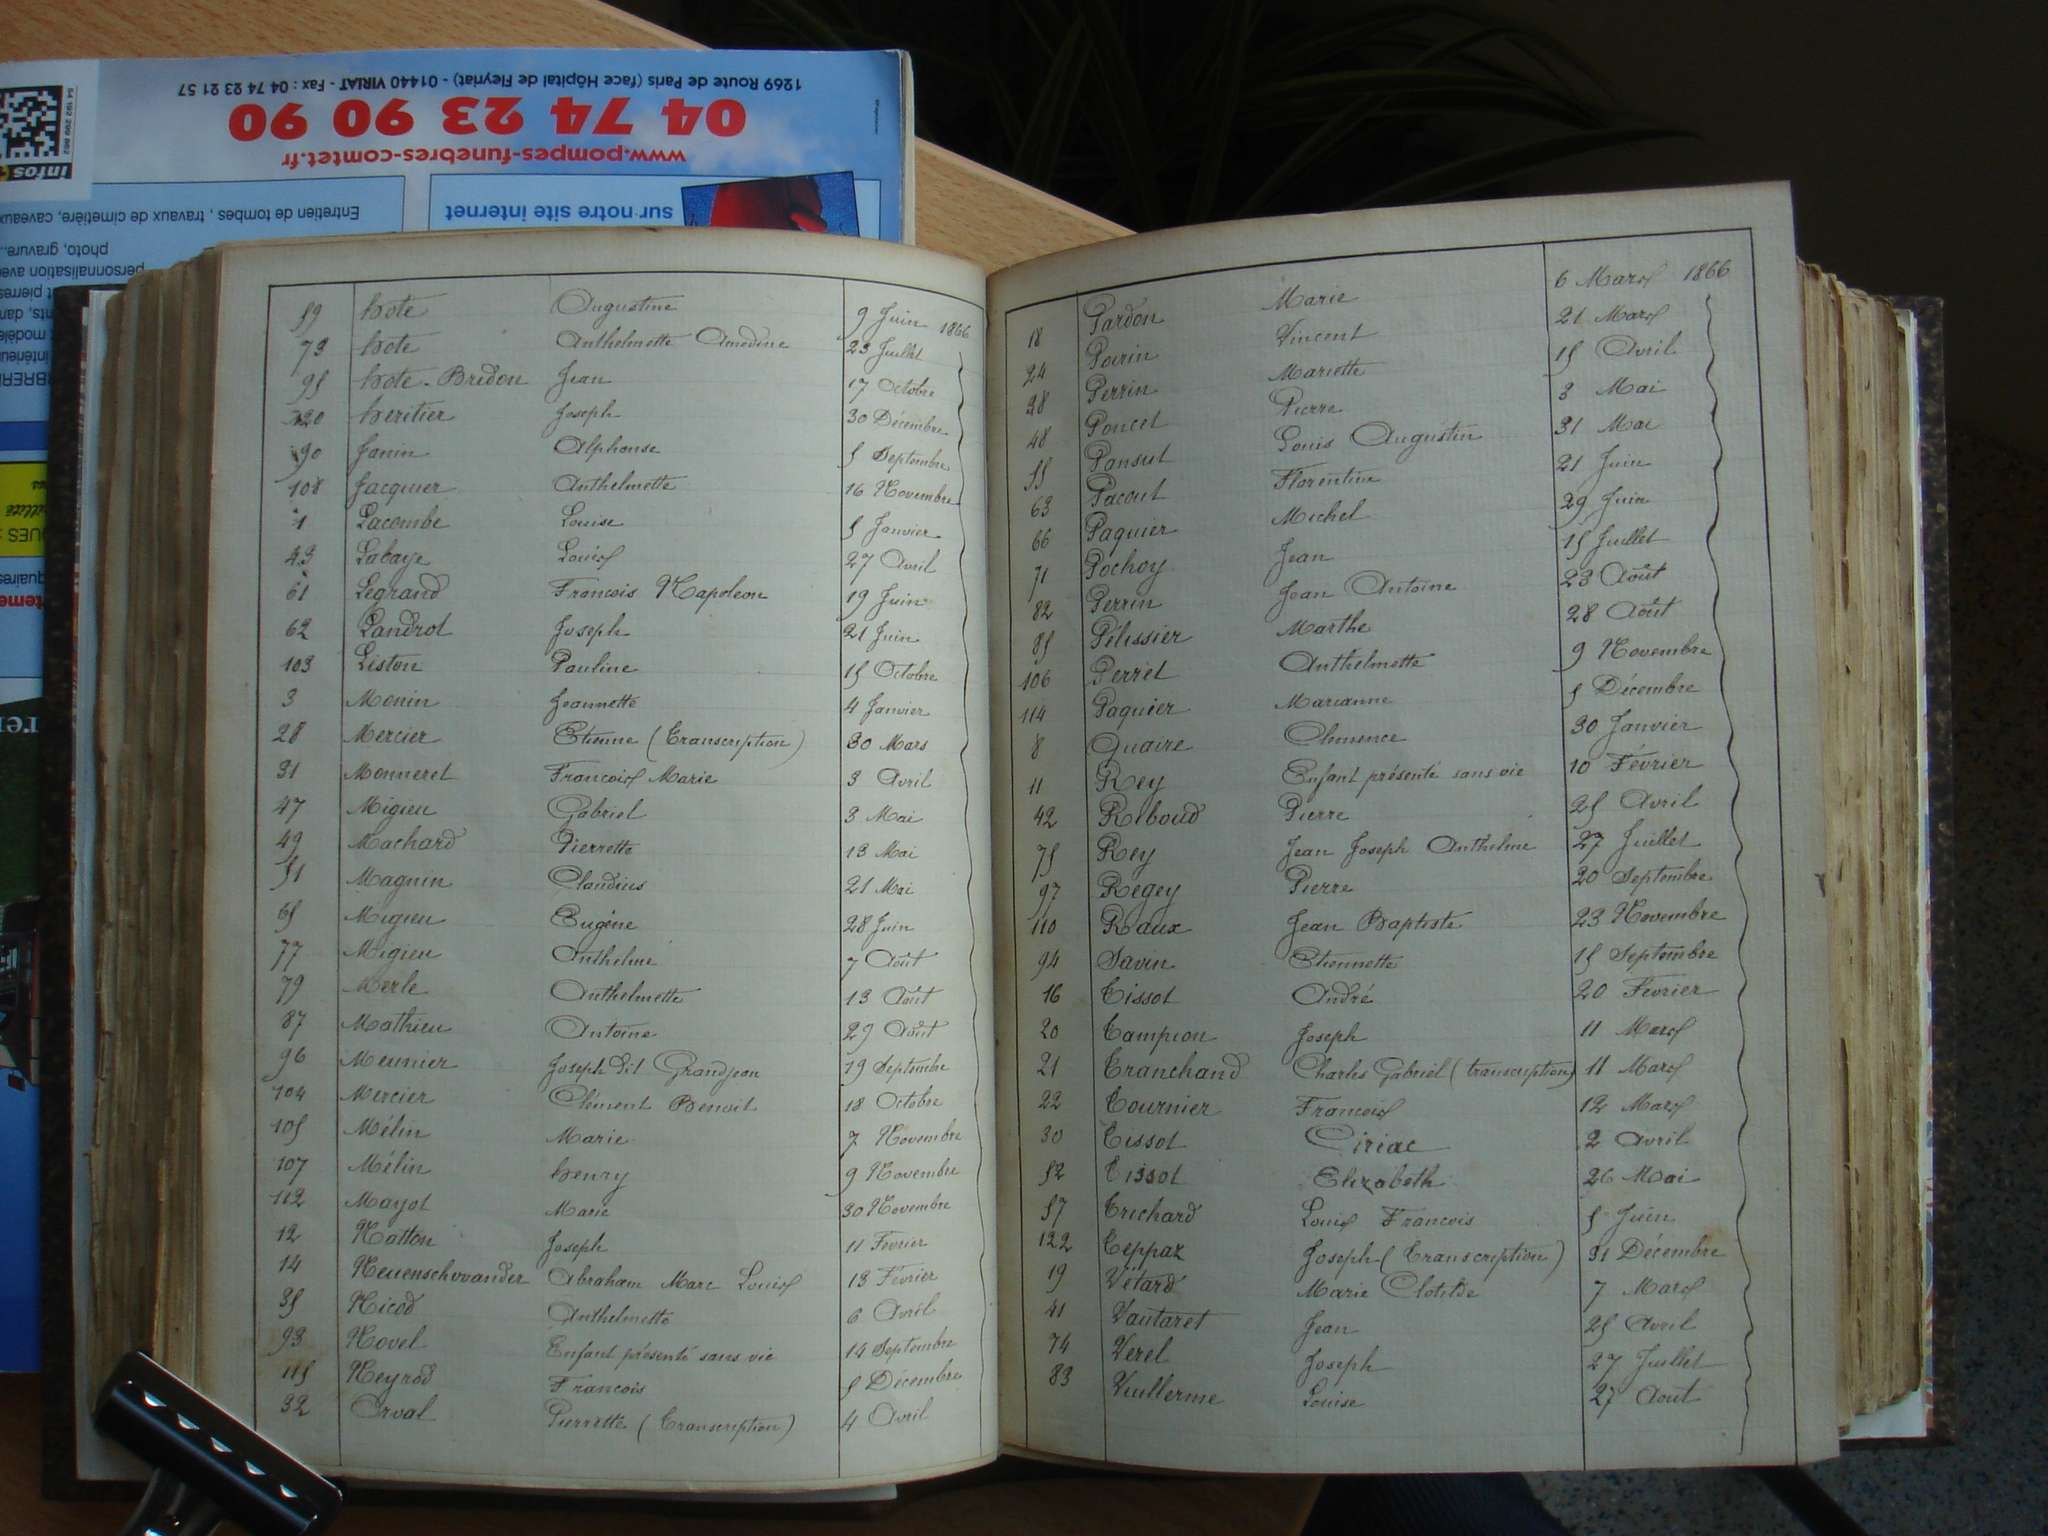 1269 Route de Paris (face Hôpital de Fleyriat) - 01440 VIRIAT - Fax : 04 74 23 21 57
04 74 23 90 90
www.pompes-funebres-comtet.fr
infos
sur notre site internet
Entretien de tombes, travaux de cimetière, caveaux
photo, gravure..
personnalisation avec
59 hote Augustine 9 Juin 1866
73 hote Anthelmette Amedine 23 Juillet
95 hote-Bridon Jean 17 Octobre
120 heritier Joseph 30 Décembre
90 Janin Alphonse 5 Septembre
108 Jacquier Anthelmette 16 Novembre
1 Lacombe Louise 5 Janvier
43 Labaye Louis 27 Avril
61 Legrand Francois Napoleon 19 Juin
62 Landrot Joseph 21 Juin
103 Liston Pauline 15 Octobre
3 Monin Jeannette 4 Janvier
28 Mercier Etienne (Transcription) 30 Mars
31 Monneret Francois Marie 3 Avril
47 Migieu Gabriel 3 Mai
49 Machard Pierrette 13 Mai
51 Magnin Claudius 21 Mai
65 Migieu Eugène 28 Juin
77 Migieu Anthelme 7 Août
79 Merle Anthelmette 13 Août
87 Mathieu Antoine 29 Août
96 Meunier Joseph dit Grandjean 19 Septembre
104 Mercier Clément Benoit 18 Octobre
105 Mélin Marie 7 Novembre
107 Mélin henry 9 Novembre
112 Mayot Marie 30 Novembre
12 Natton Joseph 11 Fevrier
14 Neuenschwander Abraham Marc Louis 13 Février
35 Nicod Anthelmette 6 Avril
93 Novel Enfant présenté sans vie 14 Septembre
115 Neyrod Francois 5 Décembre
32 Orval Pierrette (Transcription) 4 Avril
18 Pardon Marie 6 Mars 1866
24 Parin Vincent 21 Mars
28 Perrin Mariette 15 Avril
48 Poncet Pierre 3 Mai
55 Pansut Louis Augustin 31 Mai
63 Pacout Florentine 21 Juin
66 Paquier Michel 29 Juin
71 Pochoy Jean 15 Juillet
82 Perrin Jean Antoine 23 Août
85 Pélissier Marthe 28 Août
106 Perret Anthelmette 9 Novembre
114 Paquier Marianne 5 Décembre
8 Quaire Clemence 30 Janvier
11 Rey Enfant présenté sans vie 10 Février
42 Riboud Pierre 25 Avril
75 Rey Jean Joseph Anthelme 27 Juillet
97 Regey Pierre 20 Septembre
110 Raux Jean Baptiste 23 Novembre
94 Savin Etiennette 15 Septembre
16 Tissot André 20 Fevrier
20 Campion Joseph 11 Mars
21 Tranchand Charles Gabriel (transcription) 11 Mars
22 Tournier Francois 12 Mars
30 Tissot Ciriac 2 Avril
52 Tissot Elizabeth 26 Mai
57 Trichard Louis Francois 5 Juin
122 Teppaz Joseph (Transcription) 31 Décembre
19 Vétard Marie Clotilde 7 Mars
41 Vautaret Jean 25 Avril
74 Verel Joseph 27 Juillet
83 Vuillerme Louise 27 Aout